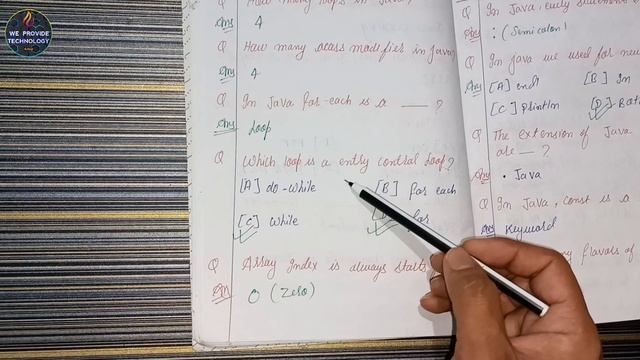 WE PROVIDE
TECHNOLOGY
Q How many loops in Java?
Ans 4
Q How many acess modifies in Java?
Ans 4
Q In Java for-each is a ___ ?
Ans Loop
Q Which loop is a entry control loop?
[A] do-while [B] for each
[C] while for
Q Array Index is always starts
Ans 0 (Zero)
Q In Java, statement
Ans ; (Semicolon)
Q In java we used for new
Ans [A] endl [B] In
[C] println [D] Both
Q The extension of Java
are — ?
Ans . Java
Q In Java, const is a
Ans Keyword
flavors of